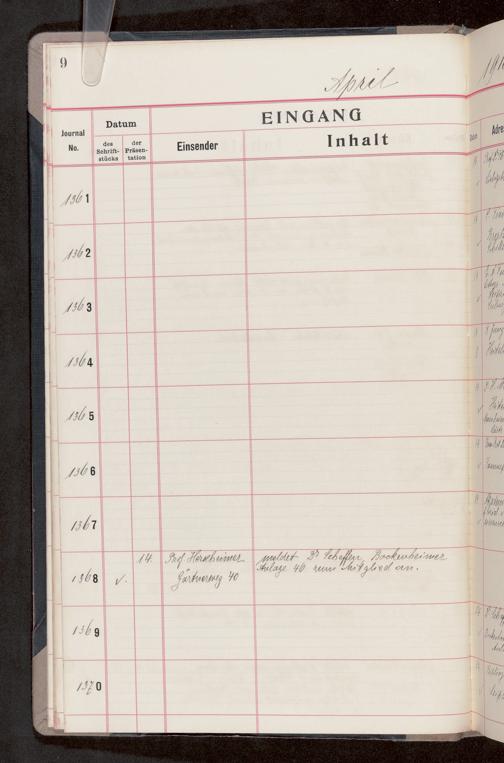 9
April
191
EINGANG
Datum
Journal
No.
des
Schrift-
stücks
der
Präsen-
tation
Einsender
Inhalt
Adre
1361
1362
1363
1364
1365
1366
1367
1368
v.
14.
Prof. Herxheimer
Gärtnerweg 40
meldet Dr Scheffen, Bockenheimer
Anlage 46 zum Mitglied an.
1369
1370